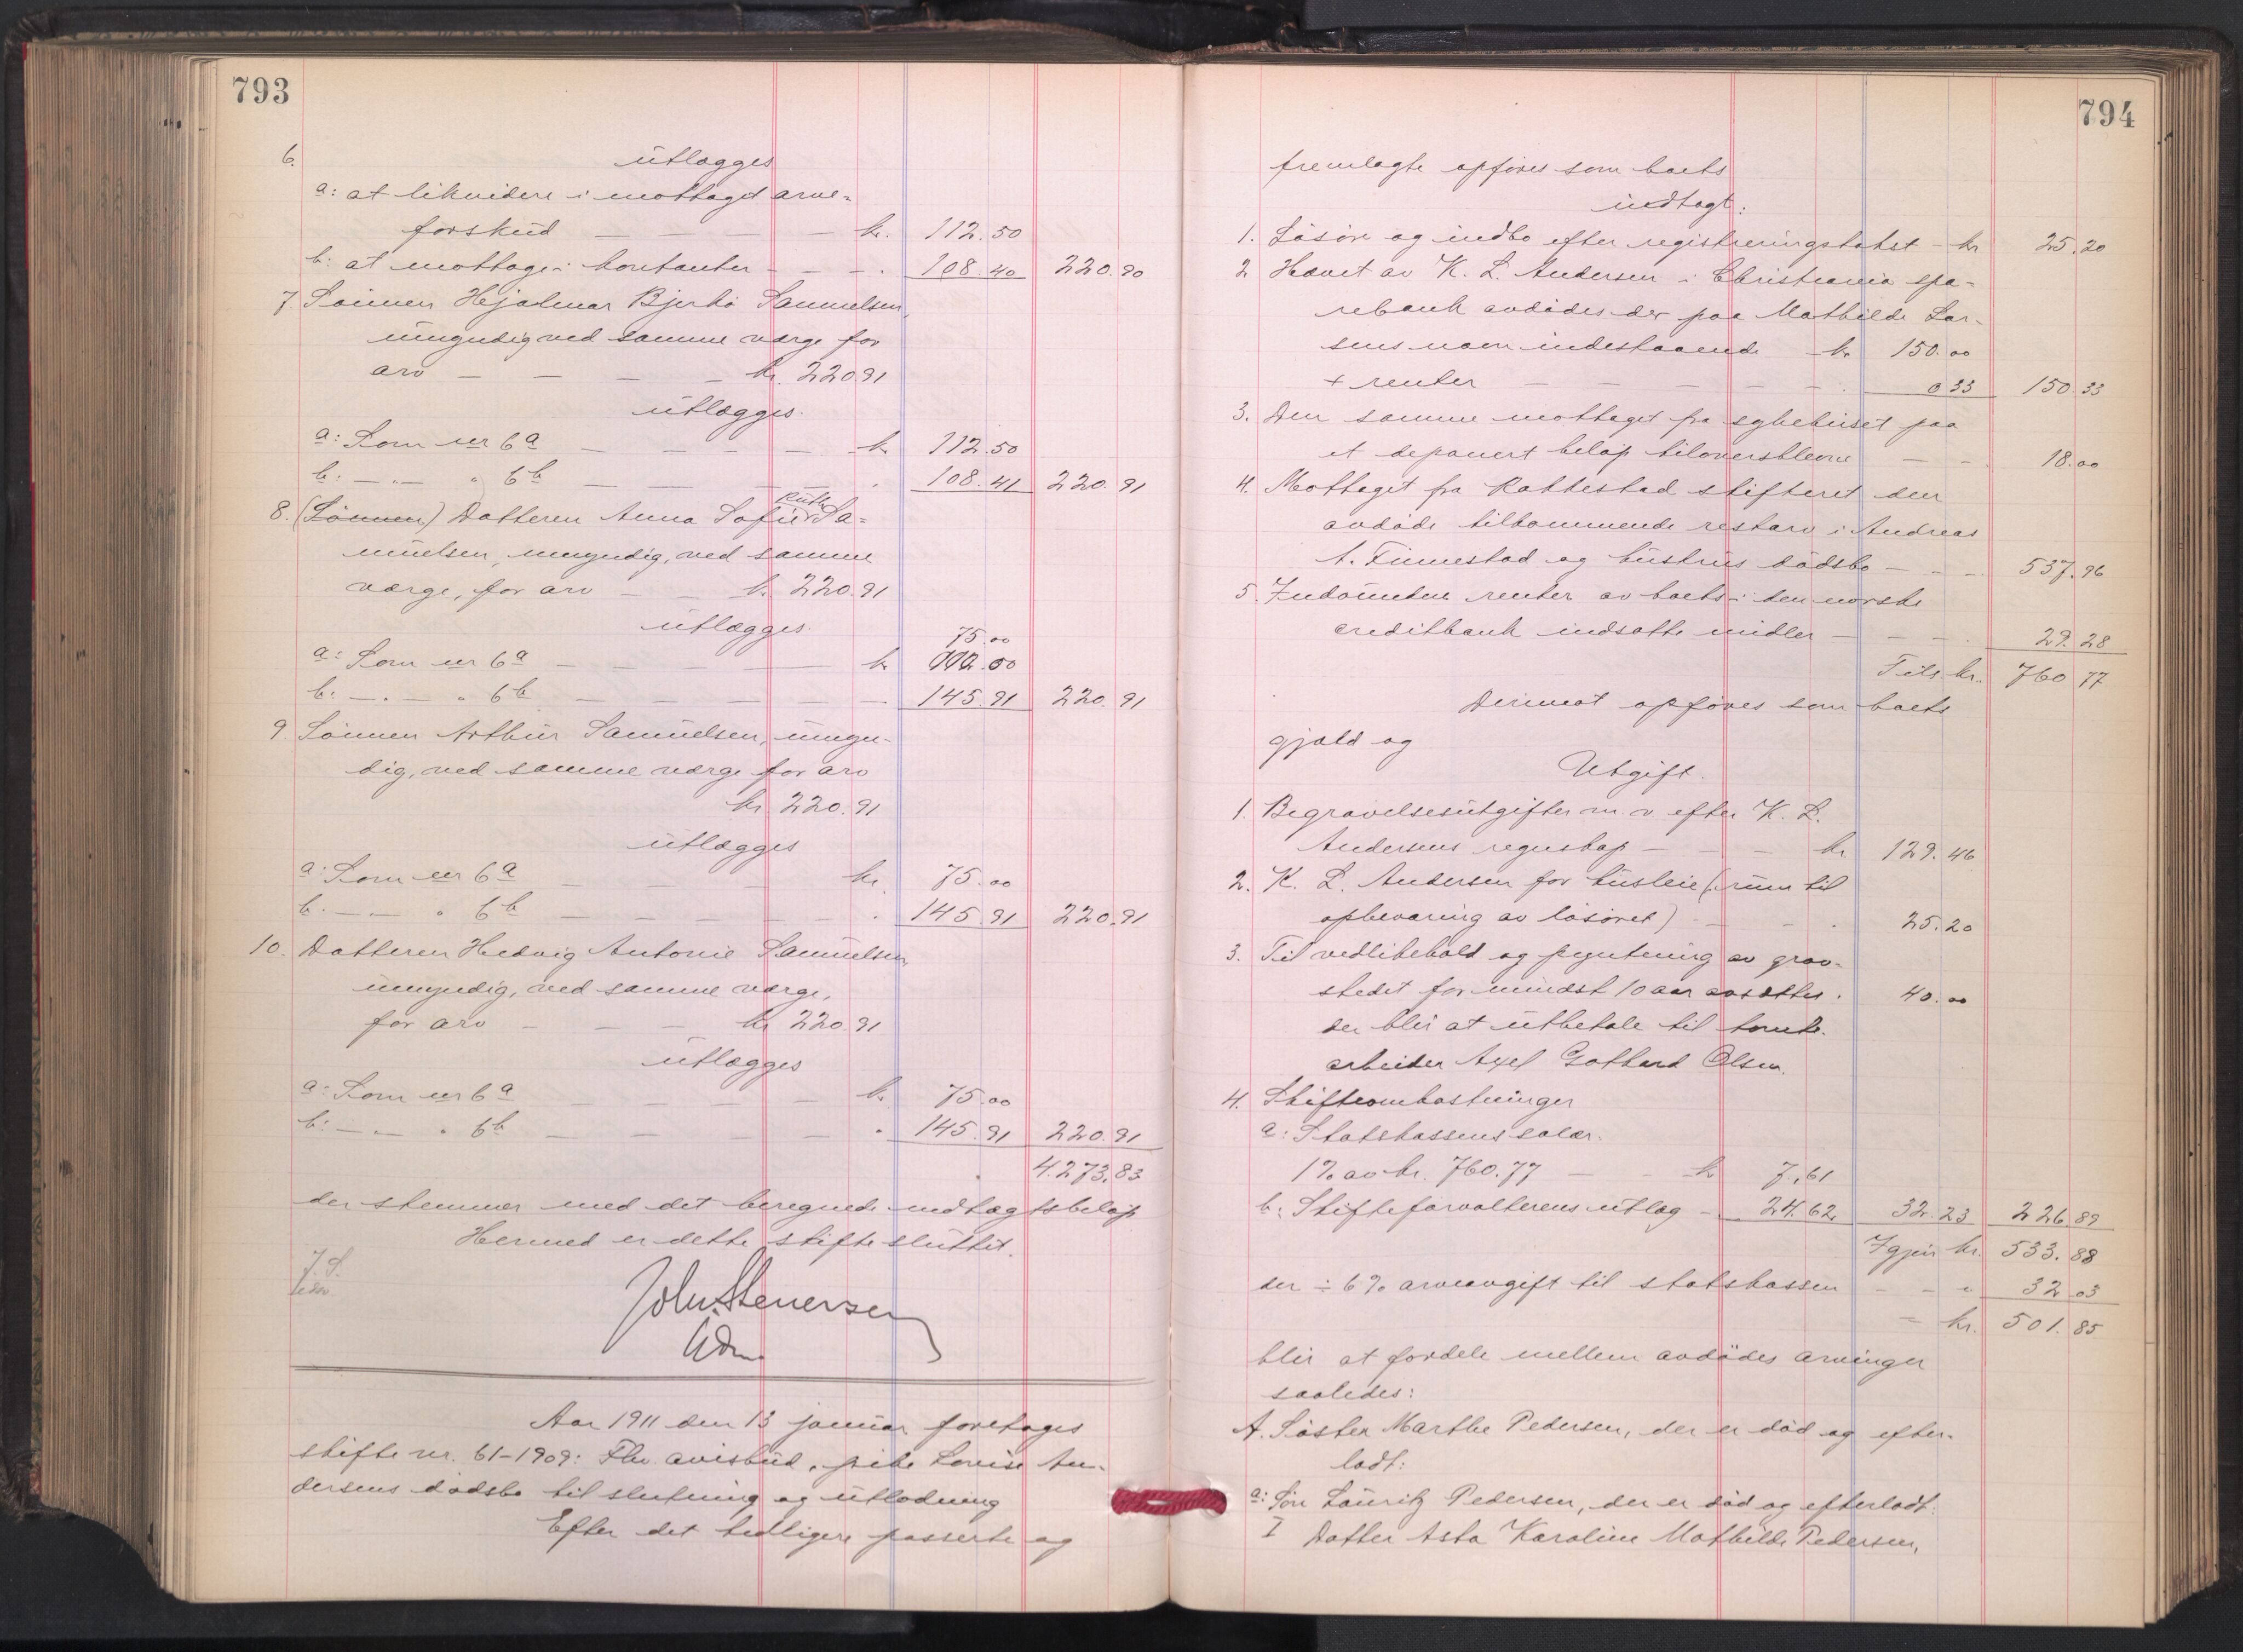 793
6. utlægges
a: at likvidere i mottaget arve-
forskud — — — — kr. 112.50
b: at mottage i kontanter - - - . 108.40 220.90
7. Sönnen Hjalmar Bjerkö Samuelsen,
umyndig ved samme værge for
arv — — — — kr. 220.91
utlægges.
a: Som nr 6a — — — — kr 112.50
b: — „ — „ 6b — — — — . 108.41 220.91
8. (Sönnen) Datteren Anna Sofie Ruth Sa-
muelsen, umyndig, ved samme
værge, for arv — — kr. 220.91
utlægges.
75.00
a: Som nr 6a — — — — kr 112.50
b: — . — „ 6b — — — — — 145.91 220.91
9. Sönnen Arthur Samuelsen, umyn-
dig, ved samme værge for arv
kr. 220.91
utlægges
a: Som nr 6a — — — kr. 75.00
b. — „ — „ 6b — — — — — . 145.91 220.91
10. Datteren Hedvig Antonie Samuelsen
umyndig, ved samme værge,
for arv — — — kr 220.91
utlægges
a: Som nr 6a — — — — kr. 75.00
b: — „ — „ 6b — — — — „ 145.91 220.91
4.273,83
der stemmer med det beregnede indtægtsbeløp
Hermed er dette skifte sluttet.
J.S.
John. Stenersen
Aar 1911 den 13 januar foretages
skifte nr. 61-1909: Fhv. avisbud, pike Louise An-
dersens dødsbo til slutning og utlodning
Efter det tidligere passerte og
794
fremlagte opføres som boets
indtægt:
1. Løsøre og indbo efter registreringstakst - kr 25.20
2 Hævet av K. L. Andersen i Christiania spa-
rebank avdødes der paa Mathilde Lar-
sens navn indestaaende — kr 150.00
+ renter — — — — — . 0 33 150 33
3. Den samme mottaget fra sykehuset paa
et deponert beløp tiloversblevne — - 18.00
4. Mottaget fra Rakkestad skifteret den
avdøde tilkommende restarv i Andreas
A. Finnestad og hustrus dødsbo — - - 537.96
5. Indvundne renter av boets i den norske
creditbank indsatte midler — — - . 29.28
Tils. kr. 760 77
Derimot opføres som boets
gjæld og
Utgift.
1. Begravelsesutgifter m. v. efter K. L.
Andersens regnskap — — — kr 129.46
2. K. L. Andersen for husleie (: rum til
opbevaring av løsøret) — - . 25.20
3. Til vedlikehold og pyntning av grav-
stedet for mindst 10 aar avsættes . 40.00
der blir at utbetale til tomte-
arbeider Axel Gothard Olsen.
4. Skifteomkostninger
a: Statskassens salær.
1% av kr. 760.77 — - kr 7,61
b: Skifteforvalterens utlæg - 24.62 32.23 226.89
Igjen kr. 533.88
der ÷ 6% arveavgift til statskassen - - „ 32.03
= kr. 501.85
blir at fordele mellem avdødes arvinger
saaledes:
A. Søster Marthe Pedersen, der er død og efter-
ladt:
a: Søn Lauritz Pedersen, der er død og efterladt:
I Datter Asta Karoline Mathilde Pedersen,